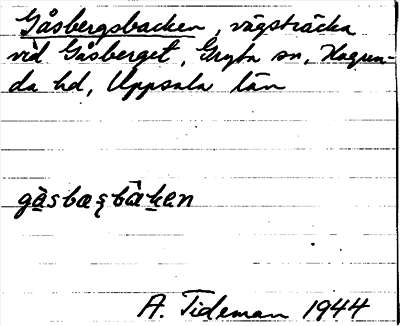 Gåsbergsbacken, vägsträcka
vid Gåsberget, Gryta sn, Hagun-
da hd, Uppsala län
A. Tideman 1944